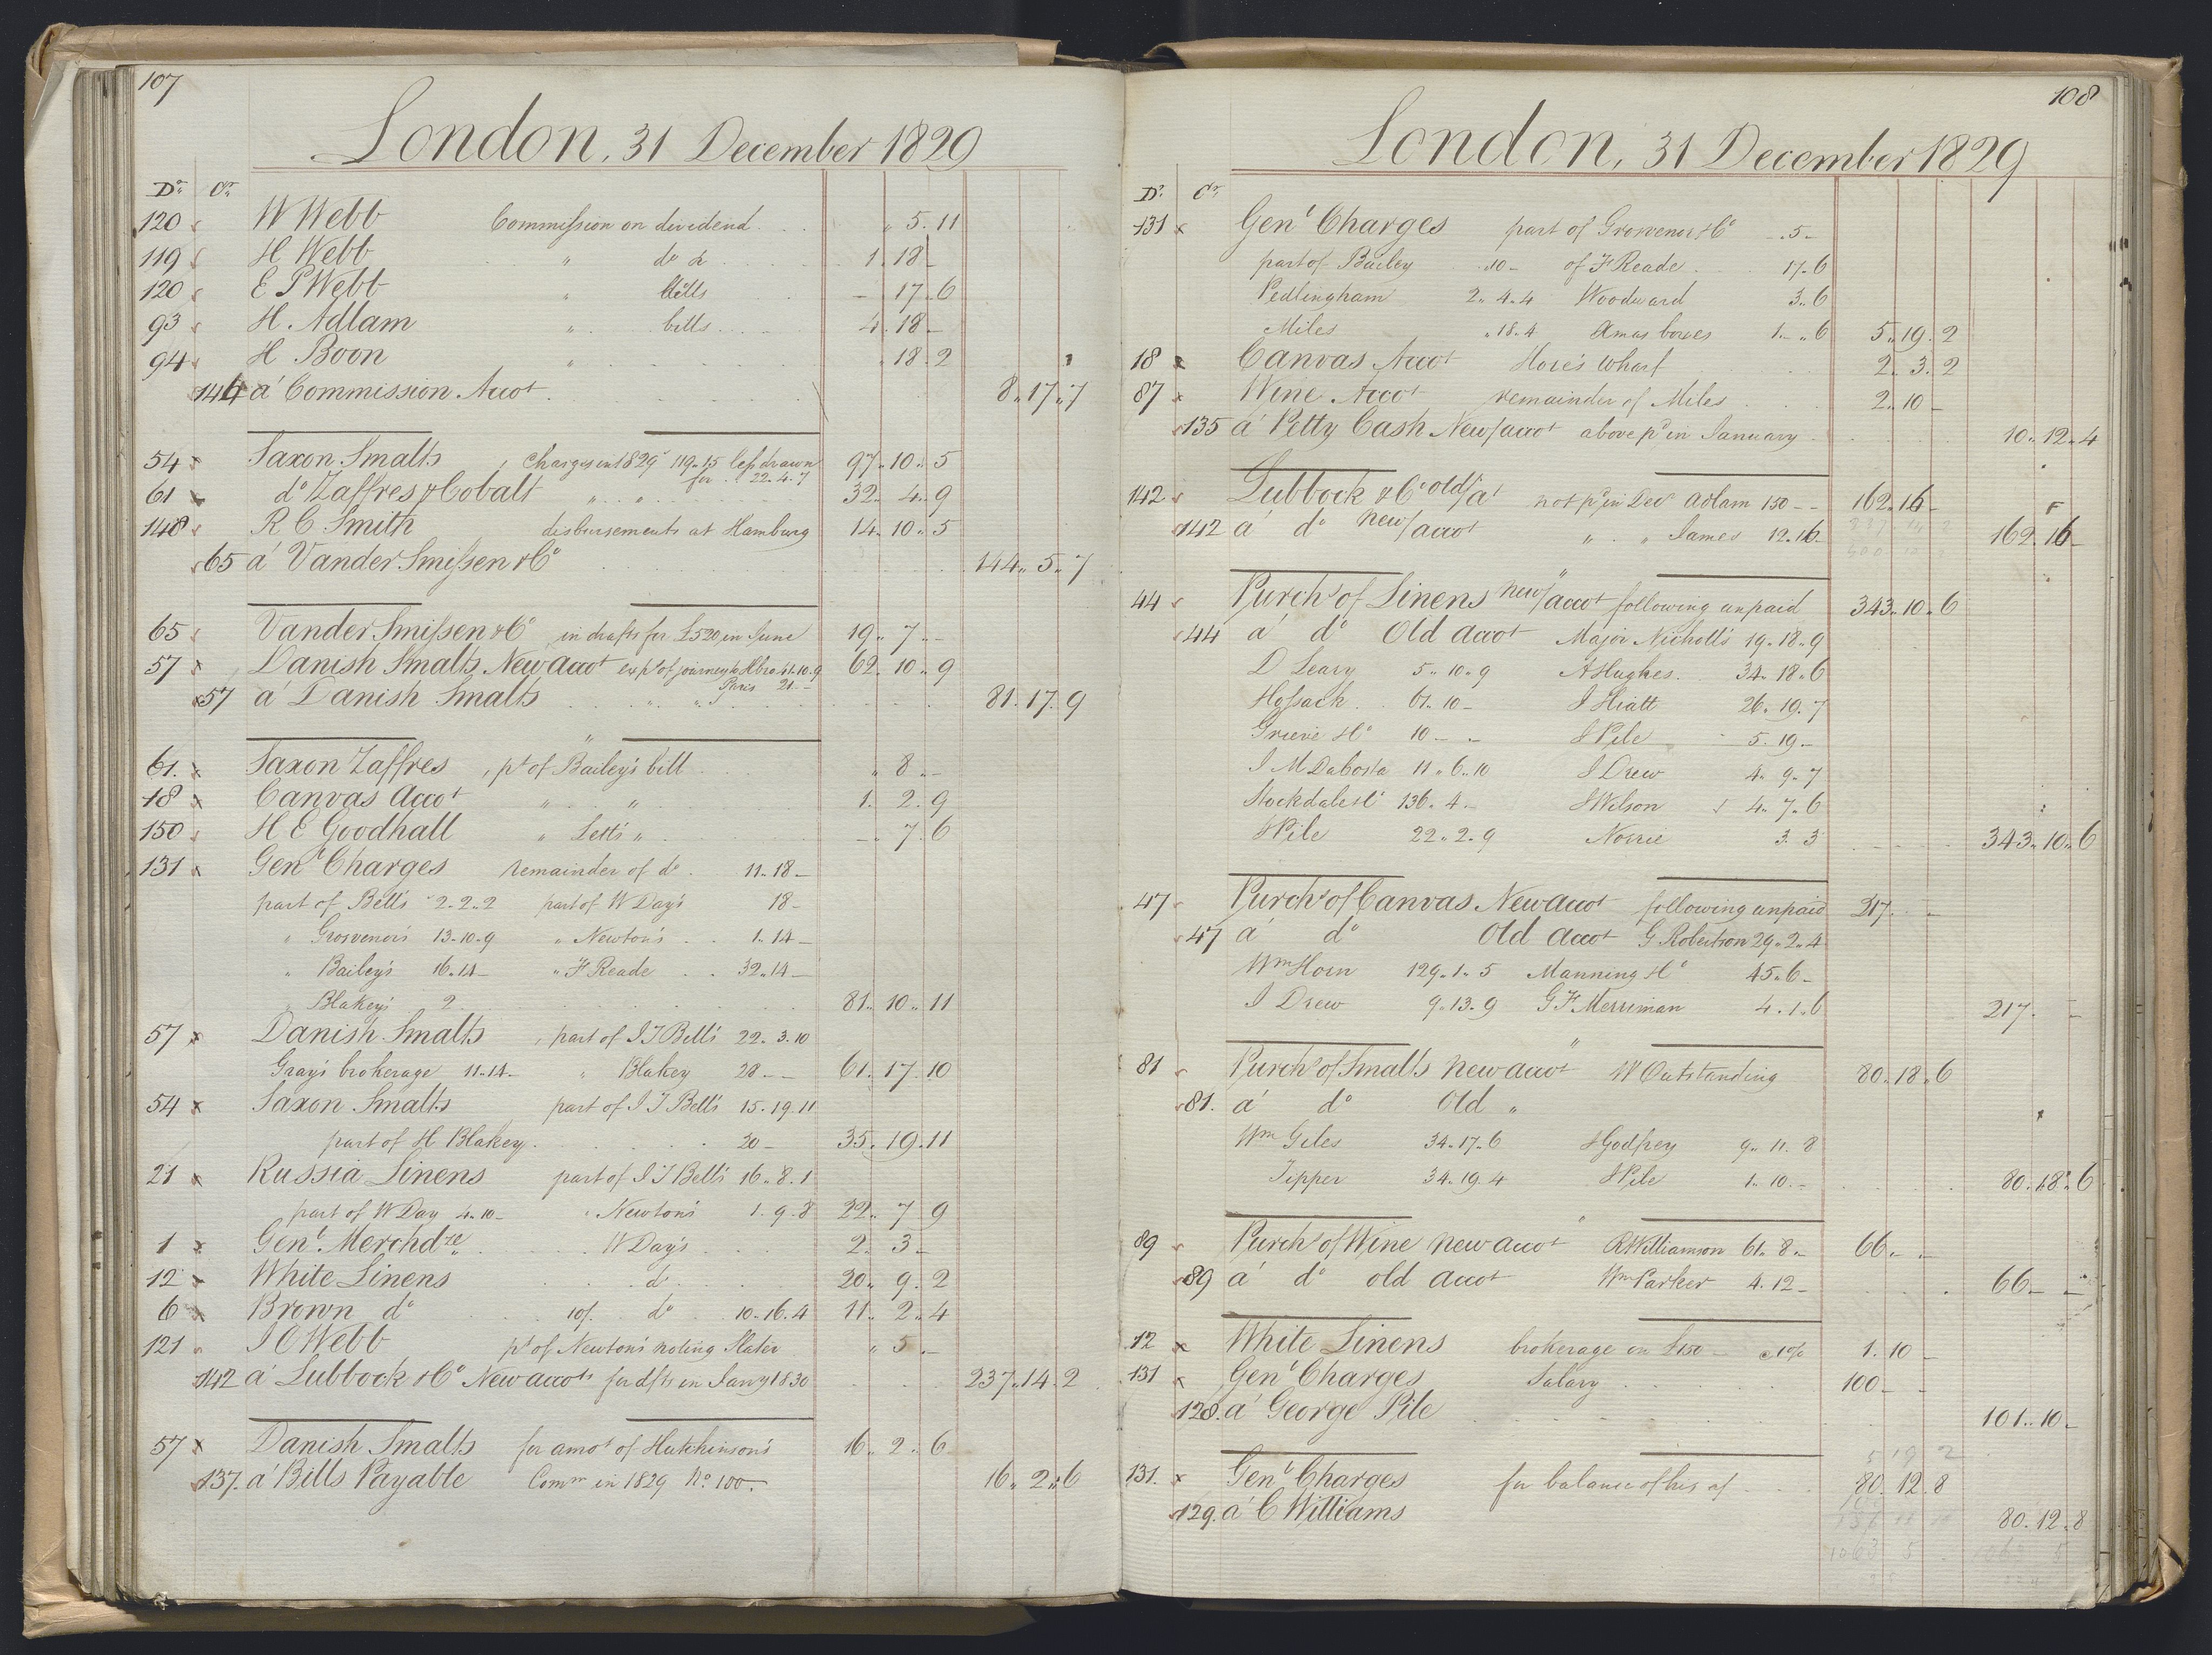 107
London, 31 December 1829
Dr. Cr.
120 W Webb Commission on dividend " 5. 11
119 H Webb " do & 1. 18 -
120 E P Webb " bills - 17. 6
93 H. Adlam " bills 4. 18 -
94 H Boon " " 18. 2
144 á Commission Accot. 8. 17. 7
54 Saxon Smalts, Charges ent 1829 119. 15 less drawn 97. 10. 5
for 22. 4. 7
61 do Zaffres & Cobalt " " 32. 4. 9
148 R C Smith disbursements at Hamburg 14. 10. 5
65 á Vander Smissen & Co 144. 5. 7
65 Vander Smissen & Co in drafts for £520 in June 19. 7. -
57 Danish Smalts New accot exps of journey to Hbro 41. 10. 9 62. 10. 9
Paris 21. -
57 á Danish Smalts " " 81. 17. 9
61. Saxon Zaffres, pt of Bailey's bill " 8. -
18 Canvas Accot " " 1. 2. 9
150 H E Goodhall " Lett's " -. 7. 6
131 Genl Charges remainder of do. 11. 18 -
part of Bell's 2. 2. 2 part of W Day's 18 -
" Grosvenor's 13. 10. 9 " Newton's 1. 14 -
" Bailey's 16. 14 - " F Reade 32. 14 -
" Blakey's 2 81. 10. 11
57 Danish Smalts, part of I T Bell's 22. 3. 10
Gray's brokerage 11. 14 - " Blakey 28 - - 61. 17. 10
54 Saxon Smalts part of I T Bell's 15. 19. 11
part of H Blakey. 20 - 35. 19. 11
21 Russia Linens part of I T Bell's 16. 8. 1
part of W Day 4. 10 - " Newton's 1. 9. 8 22. 7 9
1 Genl. Merchdze W Day's 2. 3 -
12 White Linens do 20. 9. 2
6 Brown do 10/. do 10. 16. 4 11. 2. 4
121 I O Webb pt of Newton's noting Slater " 5. -
142 á Lubbock & Co New accots for dfts in Jany 1830 237. 14. 2
57 Danish Smalts for amot of Hutchinson's 16. 2. 6
137. á Bills Payable Comm in 1829 No. 100. 16. 2. 6
108
London, 31 December 1829
Dr. Cr.
131 Genl Charges part of Grosvenor & Co -. 5 -
part of Bailey . 10 - of F Reade 17. 6
Pedlingham 2. 4. 4 Woodward 3. 6
Miles " 18. 4 Xmas boxes 1. -. 6 5. 19. 2
18 Canvas Accot Hore's Wharf 2. 3. 2
87 Wine Accot remainder of Miles 2. 10 -
135 á Petty Cash New/accot above pd in January 10. 12. 4
142 Lubbock & Co old/at not pd in Decr Adlam 150 - - 162. 16 -
142 á do new/accot " " James 12. 16 - 162. 16 -
44 Purchs of Linens new/accot following unpaid 343. 10. 6
44 á do Old Accot Major Nicholls 19. 18. 9
D Leary 5. 10. 9 A Hughes. 34. 18. 6
Hossack 61. 10 - I Hiatt 26. 19. 7
Grieve & Co 10 - - I Pile 5. 19 -
I M DaCosta 11. 6. 10 I Drew 4. 9. 7
Stockdale & Co 136. 4. - I Wilson 4. 7. 6
I Pile 22. 2. 9 Norrie 3. 3 343. 10. 6
47 Purchs of Canvas New accot following unpaid 217. - -
47 á do Old Accot G Robertson 29. 2. 4
Wm Horn 129. 1. 5 Manning & Co 45. 6 -
I Drew 9. 13. 9 G F Merriman 4. 1. 6 217. - -
81 Purchs of Smalts New accot W Outstanding 80. 18. 6
81. á do Old "
Wm Giles 34. 17. 6 I Godfrey 9. 11. 8
Tipper 34. 19. 4 I Pile 1. 10. - 80. 18. 6
89 Purchs of Wine new accot R Williamson 61. 8. - 66. - -
89 á do old accot Wm Parker 4. 12 - 66. - -
12 White Linens brokerage on £150 - @ 1% 1. 10 -
131 Genl Charges Salary 100 - -
128. á George Pile 101. 10 -
131. Genl Charges for balance of his a/ 80. 12. 8
129. á C Williams 80. 12. 8